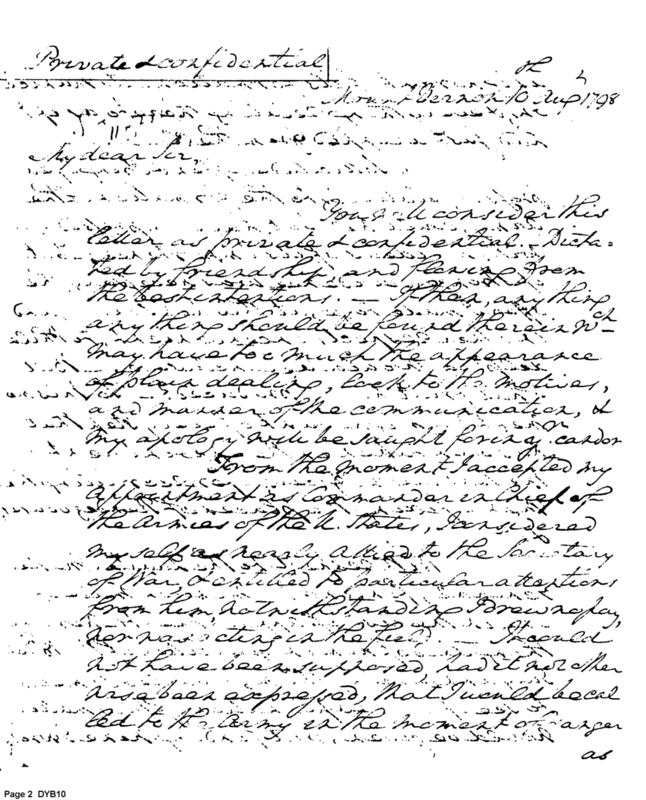 Private & confidential
Mount Vernon 10th Aug 1798
My dear Sir,
You will consider this
letter as private & confidential – Dicta=
ted by friendship, and flowing from
the best intentions. — If then, any thing
any thing should be found therein wch
may have too much the appearance
of plain dealing, look to the motives,
and manner of the communication, &
my apology will be sought for in my candor
From the moment I accepted my
appointment as Commander in chief of
the Armies of the U. States, I considered
myself as nearly allied to the Secretary
of War, & entitled to particular attentions
from him, notwithstanding I drew no pay,
nor was acting in the field — It could
not have been supposed, had it not other
wise been expressed, that I would be cal
led to the Army in the moment of danger
as
Page 2 DYB10